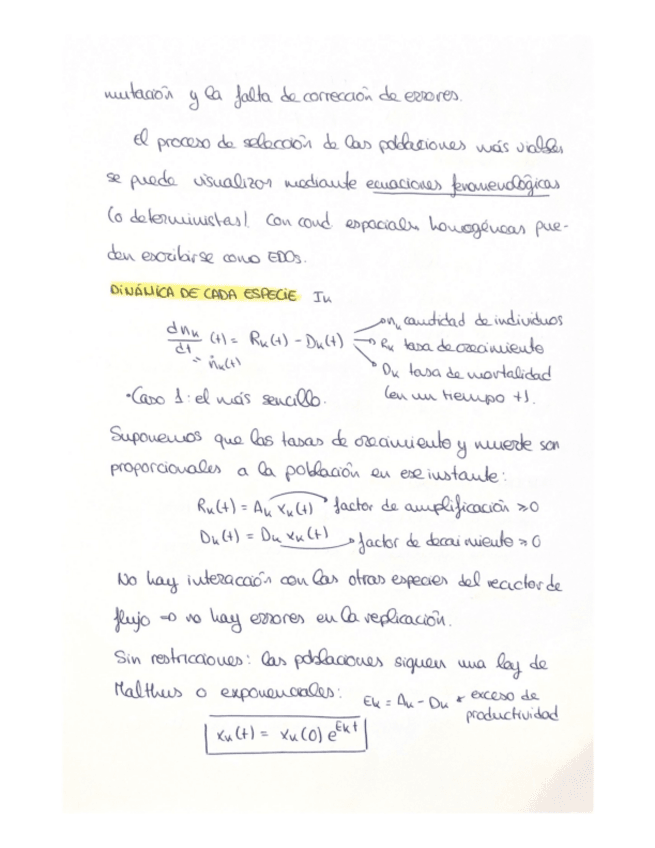 mutación y la falta de corrección de errores.
El proceso de selección de las poblaciones más viables
se puede visualizar mediante ecuaciones fenomenológicas
(o deterministas). Con cond espaciales homogéneas pue-
den escribirse como EDOs.
DINÁMICA DE CADA ESPECIE Ik
dnk/dt (t) = Rk(t) - Dk(t) → nk cantidad de individuos
= ṅk(t) → Rk tasa de crecimiento
→ Dk tasa de mortalidad
(en un tiempo t).
·Caso 1: el más sencillo.
Suponemos que las tasas de crecimiento y muerte son
proporcionales a la población en ese instante:
Rk(t) = Ak xk(t) → factor de amplificación ≥0
Dk(t) = Dk xk(t) → factor de decaimiento ≥0
No hay interacción con las otras especies del reactor de
flujo → no hay errores en la replicación.
Sin restricciones: las poblaciones siguen una ley de
Malthus o exponenciales: Ek = Ak - Dk * exceso de
productividad
xk(t) = xk(0) e^Ekt